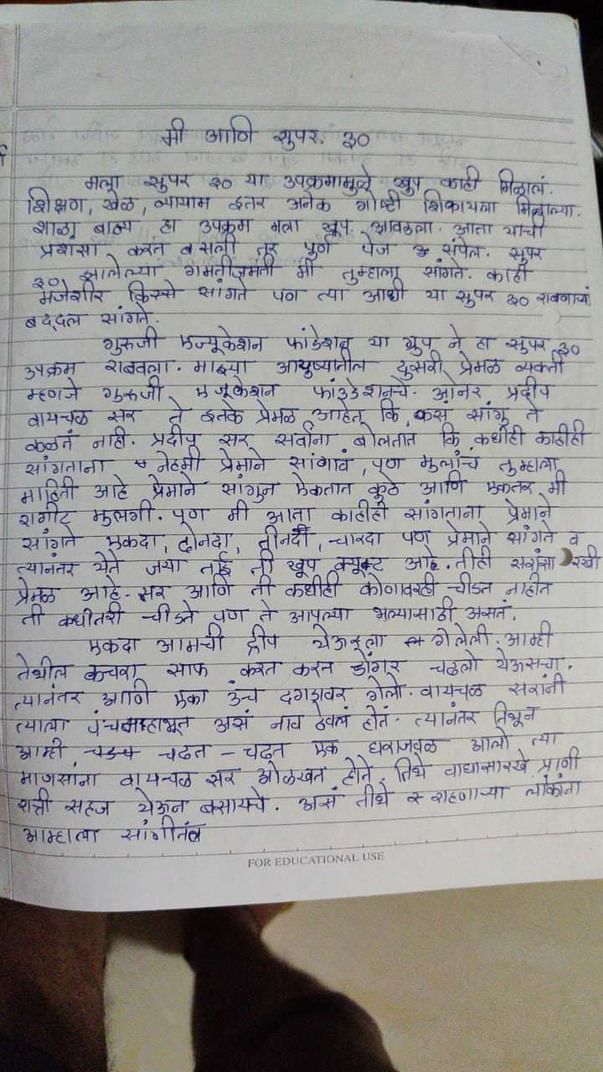 मी आणि सुपर. ३०
मला सुपर ३० या उपक्रमामुळे खुप काही मिळालं.
शिक्षण, खेळ, व्यायाम इतर अनेक गोष्टी शिकायला मिळाल्या.
शाळा बाह्य हा उपक्रम मला खूप आवडला. आता याची
प्रशंसा करत बसली तर पुर्ण पेज संपेल. सुपर
३० झालेल्या गमतीजमती मी तुम्हाला सांगते. काही
मजेशीर किस्से सांगते पण त्या आधी या सुपर ३० राबवणाऱ्यां
बद्दल सांगते.
गुरुजी एज्यूकेशन फांडेशन या ग्रुप ने हा सुपर ३०
उपक्रम राबवला. माझ्या आयुष्यातील दुसरी प्रेमळ व्यक्ती
म्हणजे गुरुजी एजूकेशन फांउडेशनचे. ओनर प्रदीप
वायचळ सर ते इतके प्रेमळ आहेत कि, कस सांगू ते
कळतं नाही. प्रदीप सर सर्वांना बोलतात कि कधीही काहीही
सांगताना नेहमी प्रेमाने सांगावं, पण मुलांच तुम्हाला
माहिती आहे प्रेमाने सांगुन ऐकतात कुठे आणि एकतर मी
रागीट मुलगी. पण मी आता काहीही सांगताना प्रेमाने
सांगते एकदा, दोनदा, तीनदा, चारदा पण प्रेमाने सांगते व
त्यानंतर येते जया ताई ती खूप क्यूट आहे. तीही सरांसारखी
प्रेमळ आहे. सर आणि ती कधीही कोणावरही चीडत नाहीत
ती कधीतरी चीडते पण ते आपल्या भल्यासाठी असतं.
एकदा आमची ट्रीप येऊरला गेलेली. आम्ही
तेथील कचरा साफ करत करत डोंगर चढलो येऊसचा.
त्यानंतर आणि एका उंच दगडावर गेलो. वायचळ सरांनी
त्याला पंचमाहाभूत असं नाव ठेवलं होतं. त्यानंतर तिथून
आम्ही चढत - चढत एक घराजवळ आलो त्या
माणसांना वायचळ सर ओळखत होते. तिथे वाघासारखे प्राणी
रात्री सहज येऊन बसायचे. असं तीथे राहणाऱ्या लोकांना
आम्हाला सांगीतलं
FOR EDUCATIONAL USE